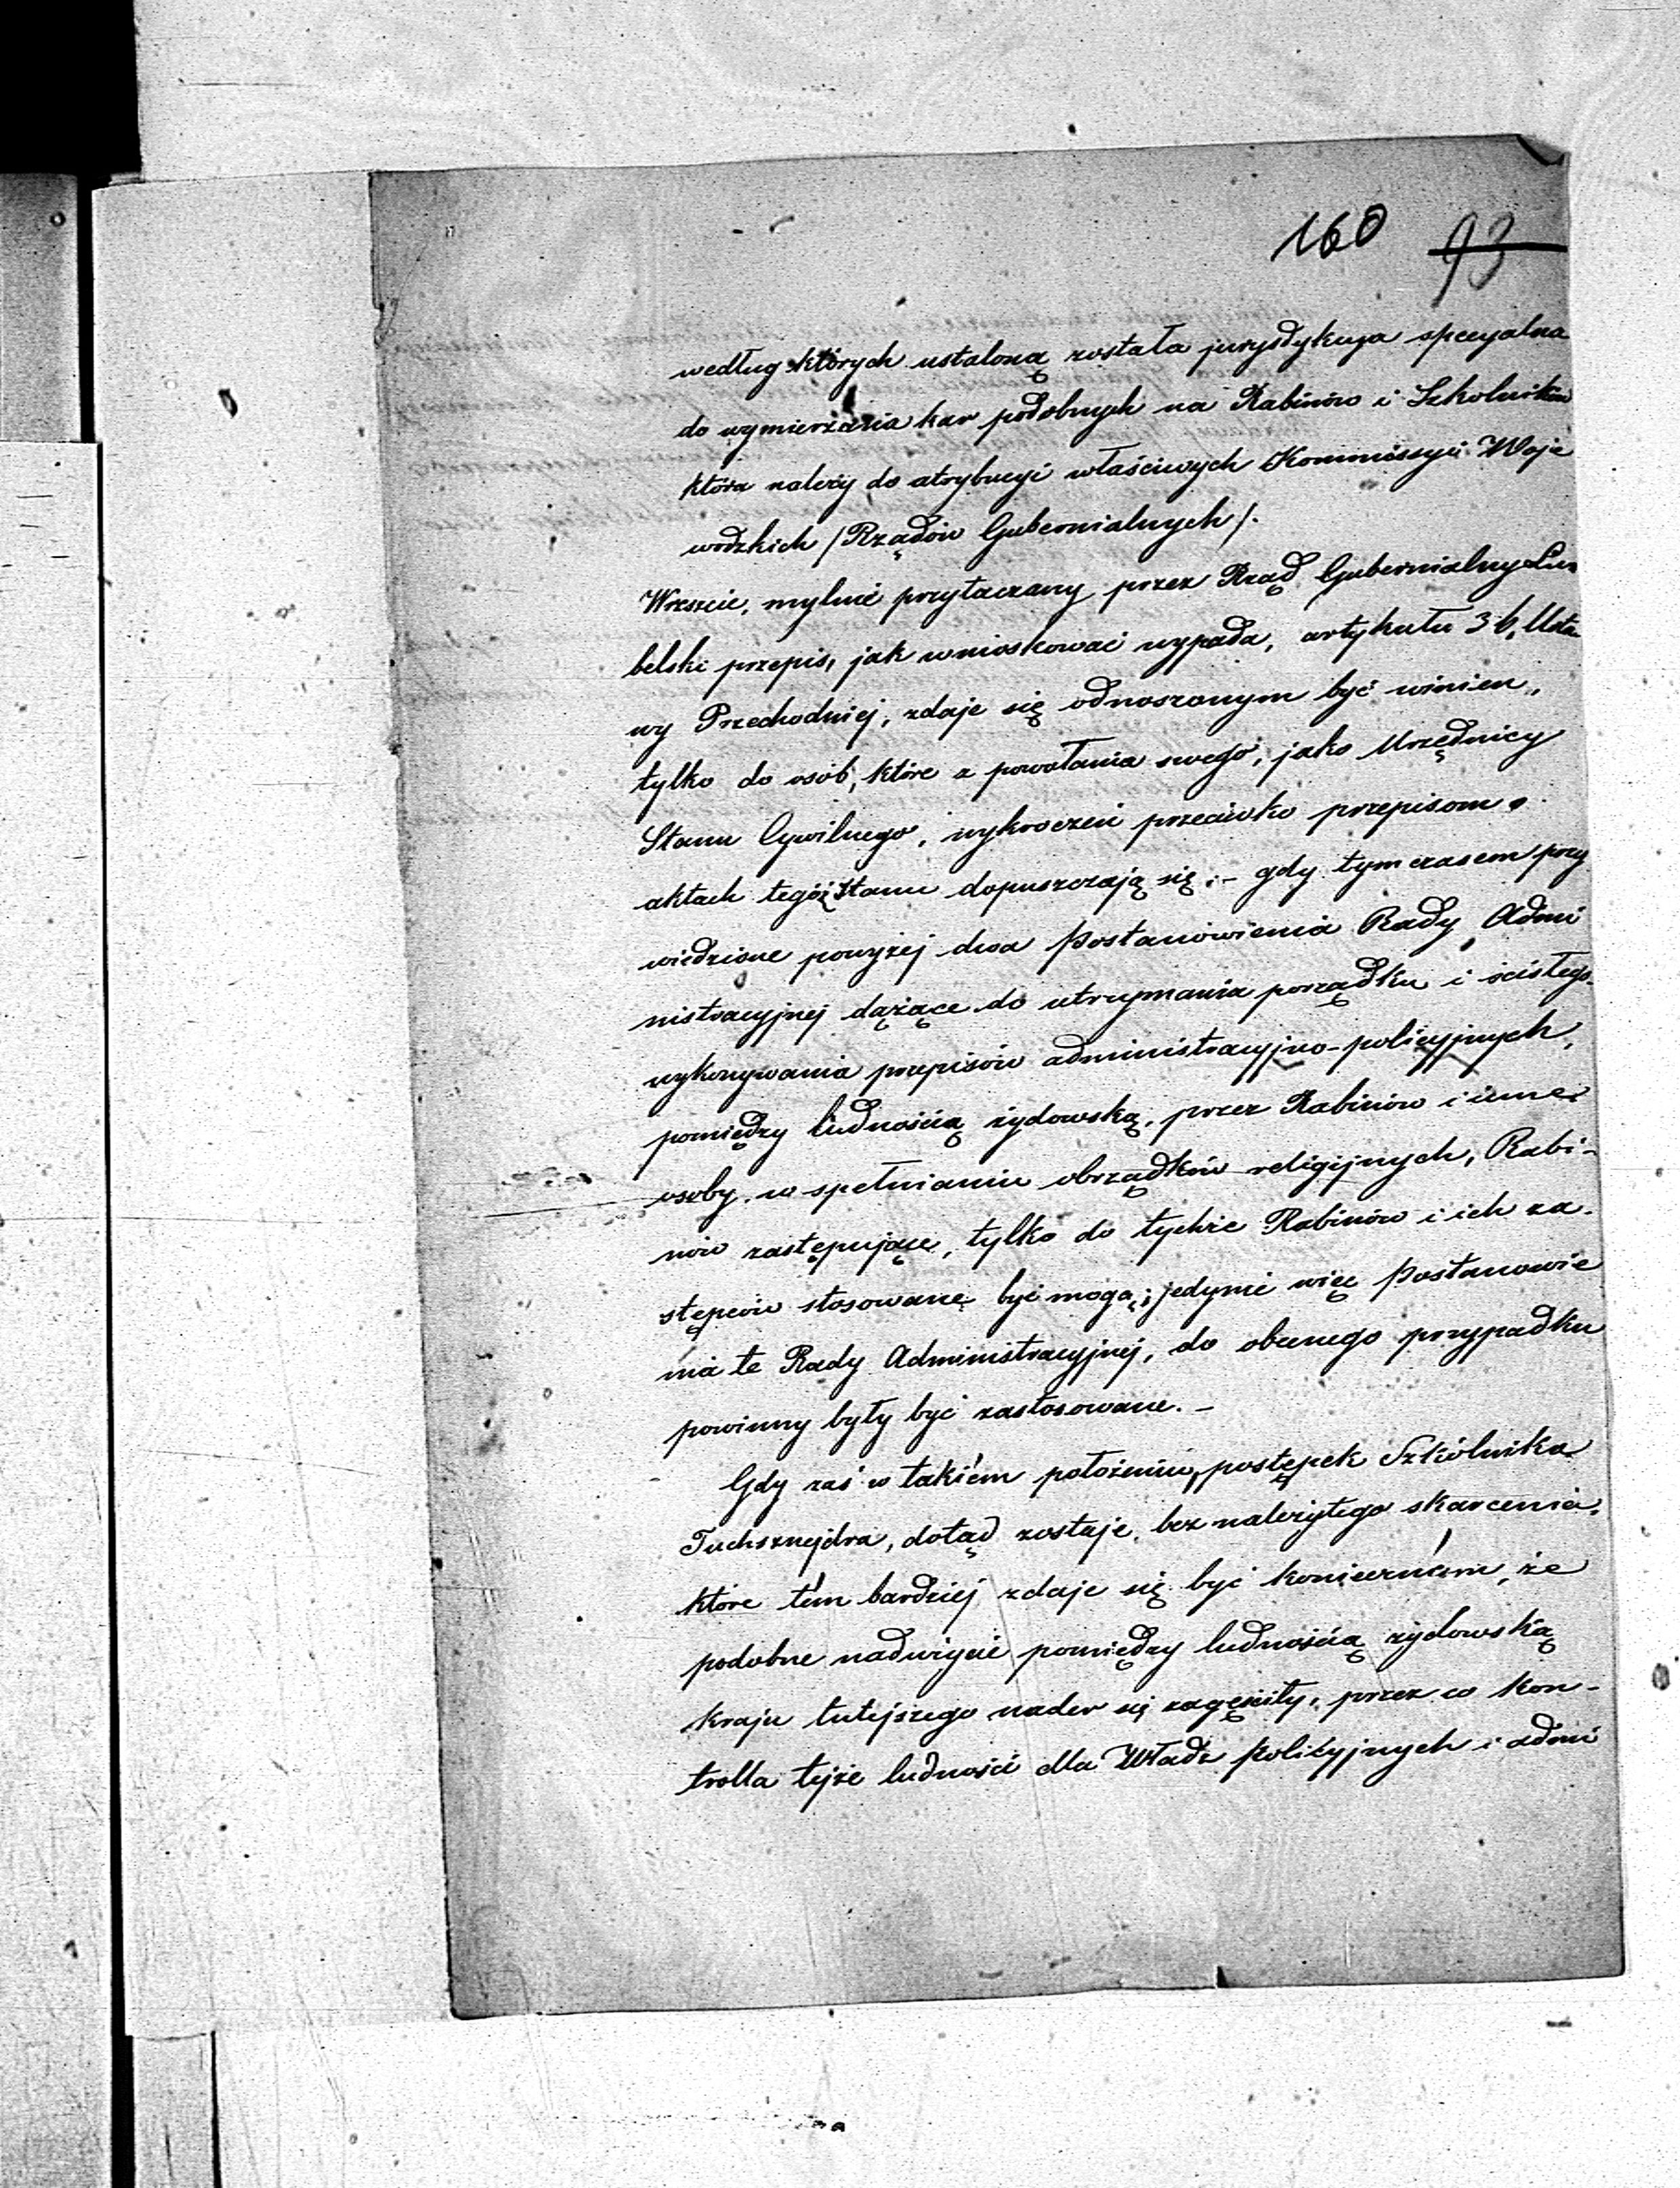 160 93
według których ustaloną została jurysdykcya specyalna
do wymierzania kar podobnych na Rabinów i Szkolników
która należy do atrybucyi właściwych Kommissyi Woje
wodzkich /Rządów Gubernialnych/.
Wreszcie, mylnie przytaczany przez Rząd Gubernialny Lu
belski przepis, jak wnioskować wypada, artykułu 36, Usta
wy Przechodniej, zdaje się odnoszonym być winien,
tylko do osób, które z powołania swego, jako Urzędnicy
Stanu Cywilnego, wykroczeń przeciwko przepisom o
aktach tegóż Stanu dopuszczają się; - gdy tymczasem przy
wiedzione powyżej dwa Postanowienia Rady Admi
nistracyjnej dążące do utrzymania porządku i ścisłego
wykonywania przepisów administracyjno-policyjnych,
pomiędzy ludnością żydowską, przez Rabinów i inne
osoby, w spełnianiu obrządków religijnych, Rabi-
nów zastępujące, tylko do tychże Rabinów i ich za-
stępców stosowane być mogą; jedynie więc Postanowie
nia te Rady Administracyjnej, do obecnego przypadku
powinny były być zastosowane. -
Gdy zaś w takiém położeniu, postępek Szkólnika
Tuchsznejdra, dotąd zostaje, bez należytego skarcenia,
które tém bardziej zdaje się być konieczném, że
podobne nadużycie pomiędzy ludnością żydowską
kraju tutejszego nader się zagęściły, przez co kon-
trolla tejże ludności dla Władz Policyjnych i admi